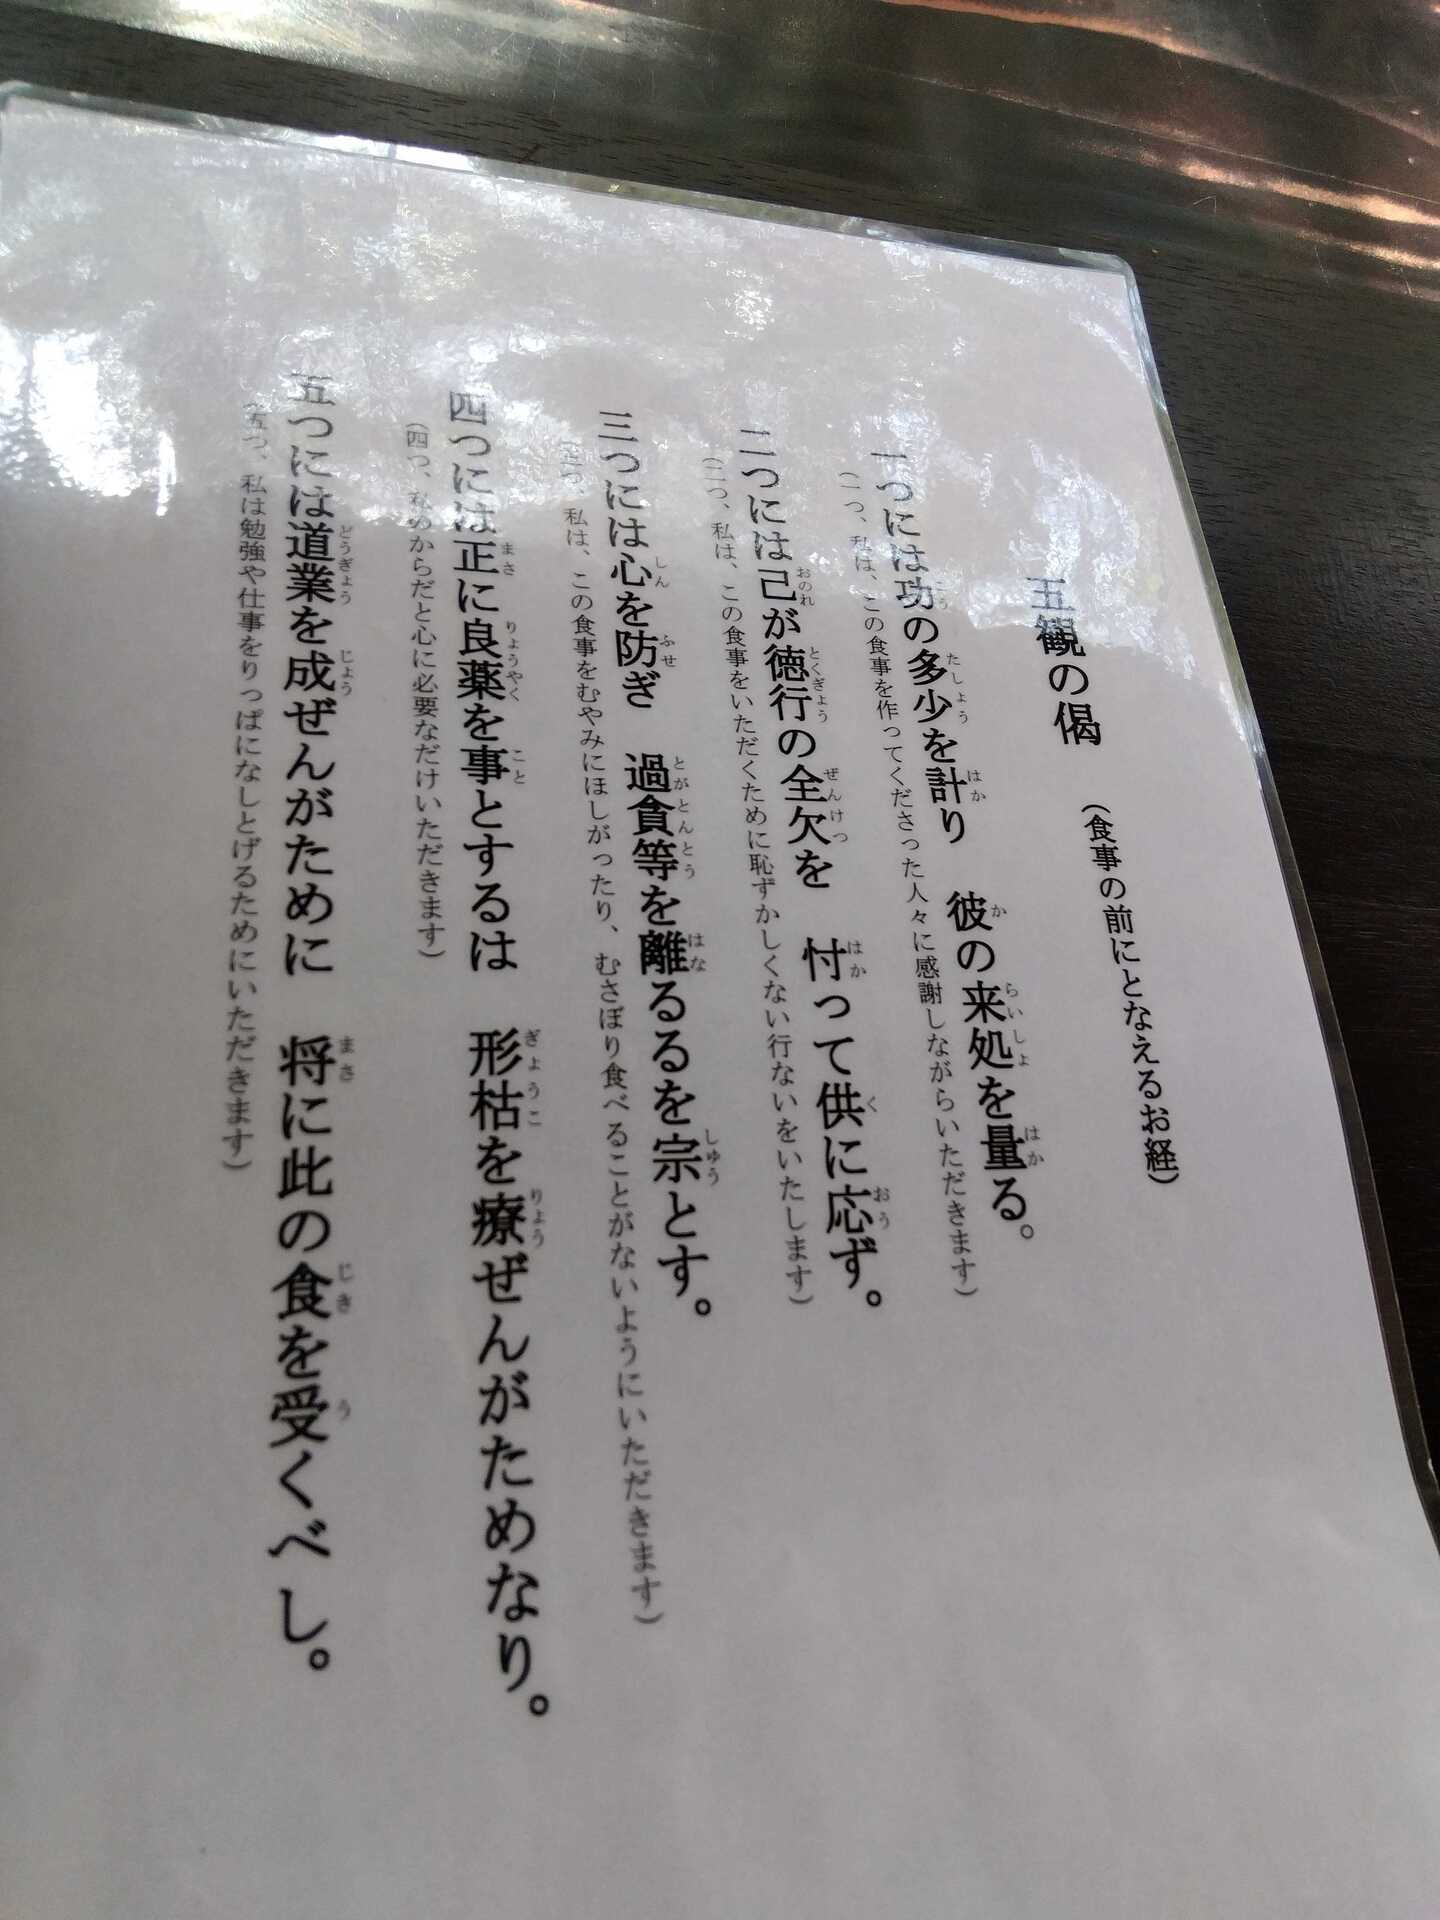 五観の偈 (食事の前にとなえるお経)
一つには功の多少を計り 彼の来処を量る。
(一つ、私は、この食事を作ってくださった人々に感謝しながらいただきます)
二つには己が徳行の全欠を 忖って供に応ず。
(二つ、私は、この食事をいただくために恥ずかしくない行ないをいたします)
三つには心を防ぎ 過貪等を離るるを宗とす。
(三つ、私は、この食事をむやみにほしがったり、むさぼり食べることがないようにいただきます)
四つには正に良薬を事とするは 形枯を療ぜんがためなり。
(四つ、私のからだと心に必要なだけいただきます)
五つには道業を成ぜんがために 将に此の食を受くべし。
(五つ、私は勉強や仕事をりっぱになしとげるためにいただきます)